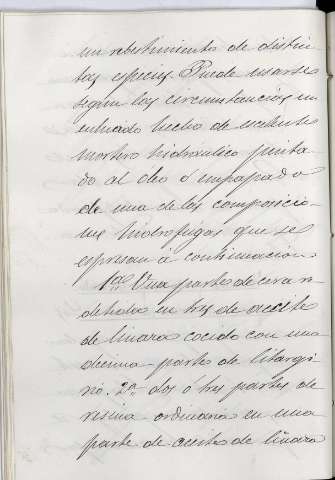 un rebestimiento de distin
tas especies. Puede usarse
segun las circunstancias un
enlucido hecho de excelente
mortero hidraulico pinta
do al oleo ó empapado
de una de las composicio
nes hidrofugas que se
espresan á continuacion
1ª Una parte de cera di
suelta en tres de aceite
de linaza cocido con una
decima parte de litargi
rio. 2ª dos ó tres partes de
resina ordinaria en una
parte de aceite de linaza